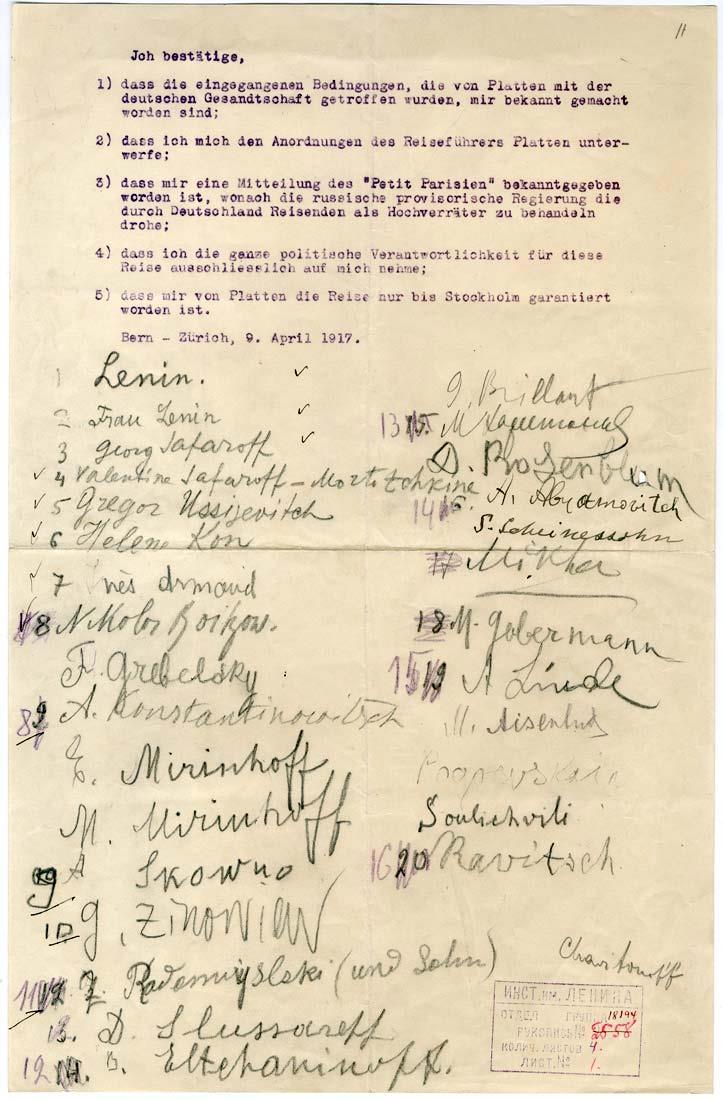 11
Joh bestätige,
1) dass die eingegangenen Bedingungen, die von Platten mit der
deutschen Gesandtschaft getroffen wurden, mir bekannt gemacht
worden sind;
2) dass ich mich den Anordnungen des Reiseführers Platten unter-
werfe;
3) dass mir eine Mitteilung des "Petit Parisien" bekanntgegeben
worden ist, wonach die russische provisorische Regierung die
durch Deutschland Reisenden als Hochverräter zu behandeln
drohe;
4) dass ich die ganze politische Verantwortlichkeit für diese
Reise ausschliesslich auf mich nehme;
5) dass mir von Platten die Reise nur bis Stockholm garantiert
worden ist.
Bern - Zürich, 9. April 1917.
1 Lenin. ✓
2 Frau Lenin ✓
3 Georg Safaroff ✓
✓ 4 Valentine Safaroff - Mortotchkine
✓ 5 Gregor Ussijevitch
✓ 6 Helene Kon
✓ 7 Inès Armand
8 N
F. Grebelsky
9 A. Konstantinowitsch
E. Mirinhoff
M. Mirinhoff
9 A Skowno
10 G. Zinowiew
11 12 Z. Radomyslski (und Sohn)
13. D. Slussareff
12 14. B. Eltchaninoff.
Brillant
13 15. M
D. Rosenblum
14 16. A. Abramovitch
S. Scheinessohn
17
18 M. Gobermann
15 19 A Linde
M. Aisenbud
Pripevskaia
Soulichvili
16 20 Ravitsch
Charitonoff
ИНСТ. ИМ. ЛЕНИНА
ОТДЕЛ ГРУППА 18194
РУКОПИСЬ № 2558
КОЛИЧ. ЛИСТОВ 4.
ЛИСТ. № 1.